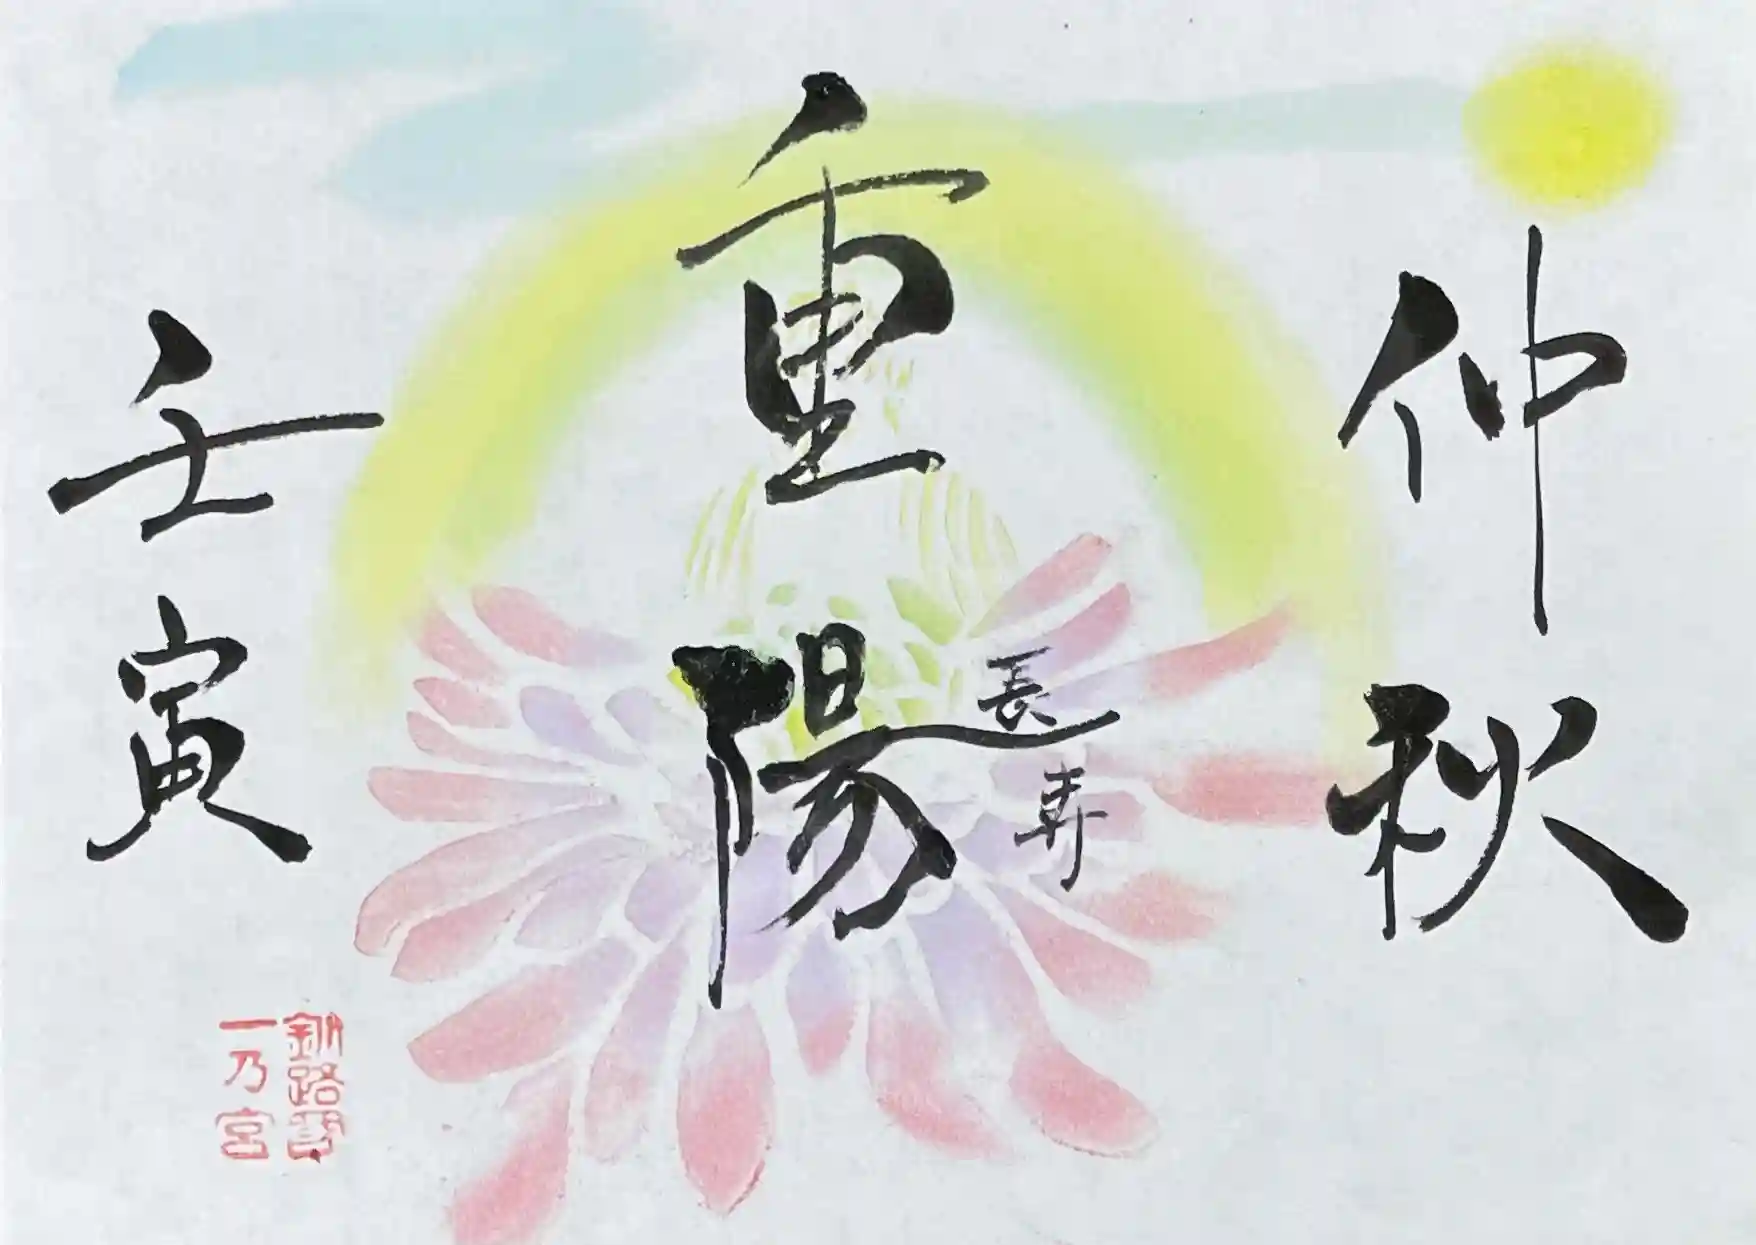 仲秋
重陽
長寿
壬寅
釧路
一乃宮